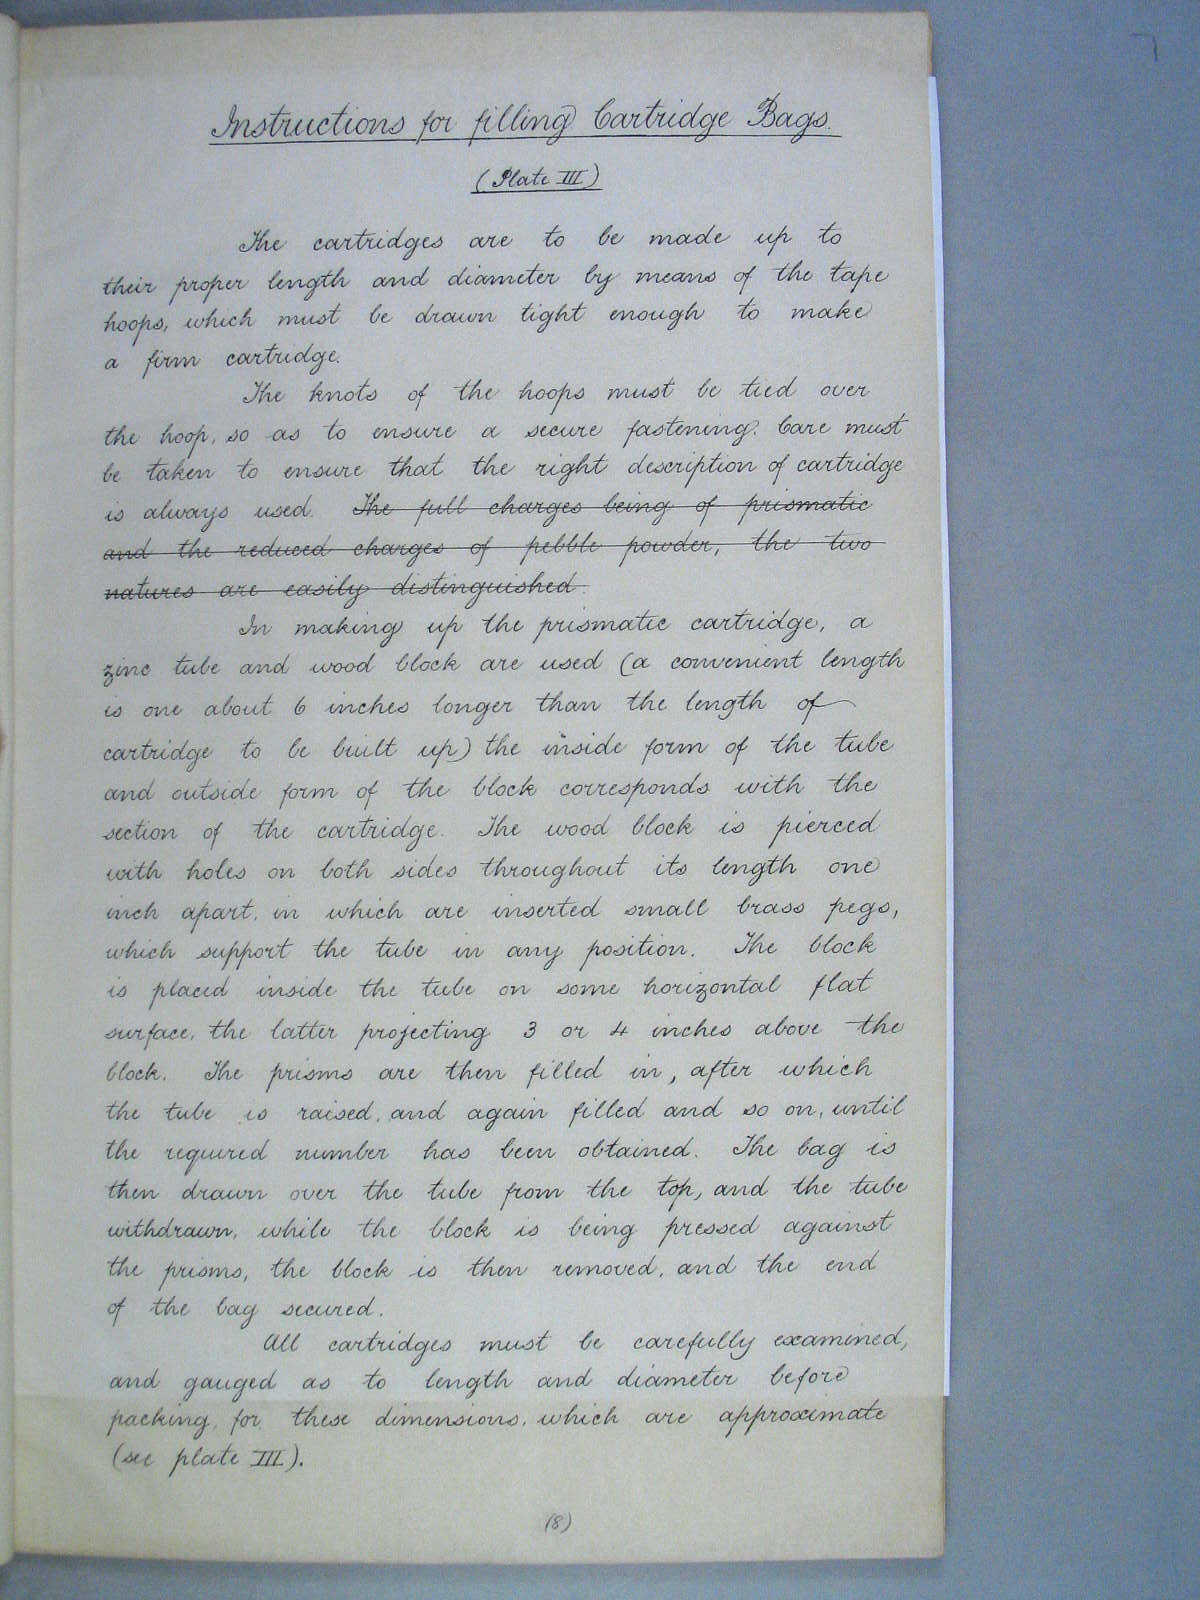 Instructions for filling Cartridge Bags.
(Plate III)
The cartridges are to be made up to
their proper length and diameter by means of the tape
hoops, which must be drawn tight enough to make
a firm cartridge.
The knots of the hoops must be tied over
the hoop, so as to ensure a secure fastening. Care must
be taken to ensure that the right description of cartridge
is always used. The full charges being of prismatic
and the reduced charges of pebble powder, the two
natures are easily distinguished.
In making up the prismatic cartridge, a
zinc tube and wood block are used (a convenient length
is one about 6 inches longer than the length of
cartridge to be built up) the inside form of the tube
and outside form of the block corresponds with the
section of the cartridge. The wood block is pierced
with holes on both sides throughout its length one
inch apart, in which are inserted small brass pegs,
which support the tube in any position. The block
is placed inside the tube on some horizontal flat
surface, the latter projecting 3 or 4 inches above the
block. The prisms are then filled in, after which
the tube is raised, and again filled and so on, until
the required number has been obtained. The bag is
then drawn over the tube from the top, and the tube
withdrawn, while the block is being pressed against
the prisms, the block is then removed, and the end
of the bag secured.
All cartridges must be carefully examined,
and gauged as to length and diameter before
packing, for these dimensions, which are approximate
(see plate III).
(8)